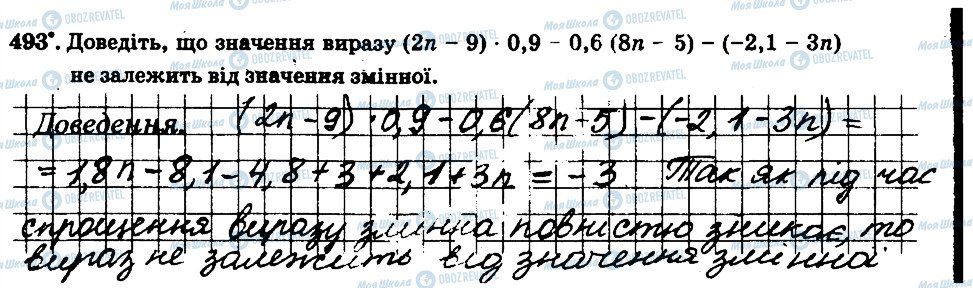 493°. Доведіть, що значення виразу (2n – 9) · 0,9 – 0,6 (8n – 5) – (–2,1 – 3n)
не залежить від значення змінної.
Доведення. (2n – 9) · 0,9 – 0,6(8n – 5) – (–2,1 – 3n) =
= 1,8n – 8,1 – 4,8 + 3 + 2,1 + 3n = –3 Так як під час
спрощення виразу змінна повністю зникає, то
вираз не залежить від значення змінної